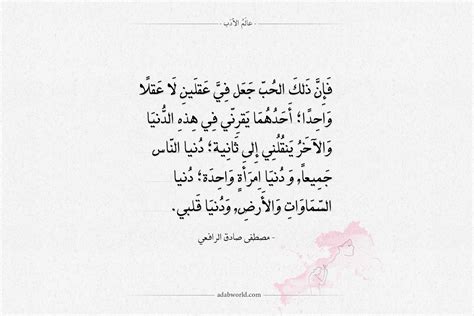 - عالم الأدب -
فَإِنَّ ذَلكَ الحُبّ جَعَل فِيَّ عَقلَينِ لَا عَقلًا
وَاحِدًا؛ أَحَدُهُمَا يَقرنّي فِي هِذهِ الدُّنيَا
وَالآخَرُ يَنقُلُنِي إِلى ثَانِية؛ دُنيَا النّاس
جَمِيعاً, وَ دُنيَا اِمرَأَةٍ وَاحِدَة؛ دُنيا
السّمَاوَاتِ وَالأَرضِ, وَدُنيَا قَلبي.
- مصطفى صادق الرافعي -
adabworld.com